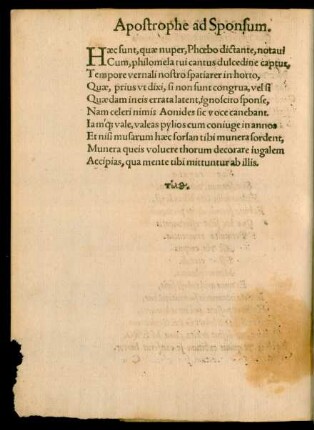 Apostrophe ad Sponsum.
Hæc sunt, quæ nuper, Phœbo dictante, notaui
Cum, philomela tui cantus dulcedine captus,
Tempore vernali nostro spatiarer in horto,
Quæ, prius vt dixi, si non sunt congrua, vel si
Quædam ineis errata latent, ignoscito sponse,
Nam celeri nimis Aonides sic voce canebant.
Iamq; vale, valeas pylios cum coniuge in annos
Et nisi musarum hæc forsan tibi munera sordent,
Munera queis voluere thorum decorare iugalem
Accipias, qua mente tibi mittuntur ab illis.